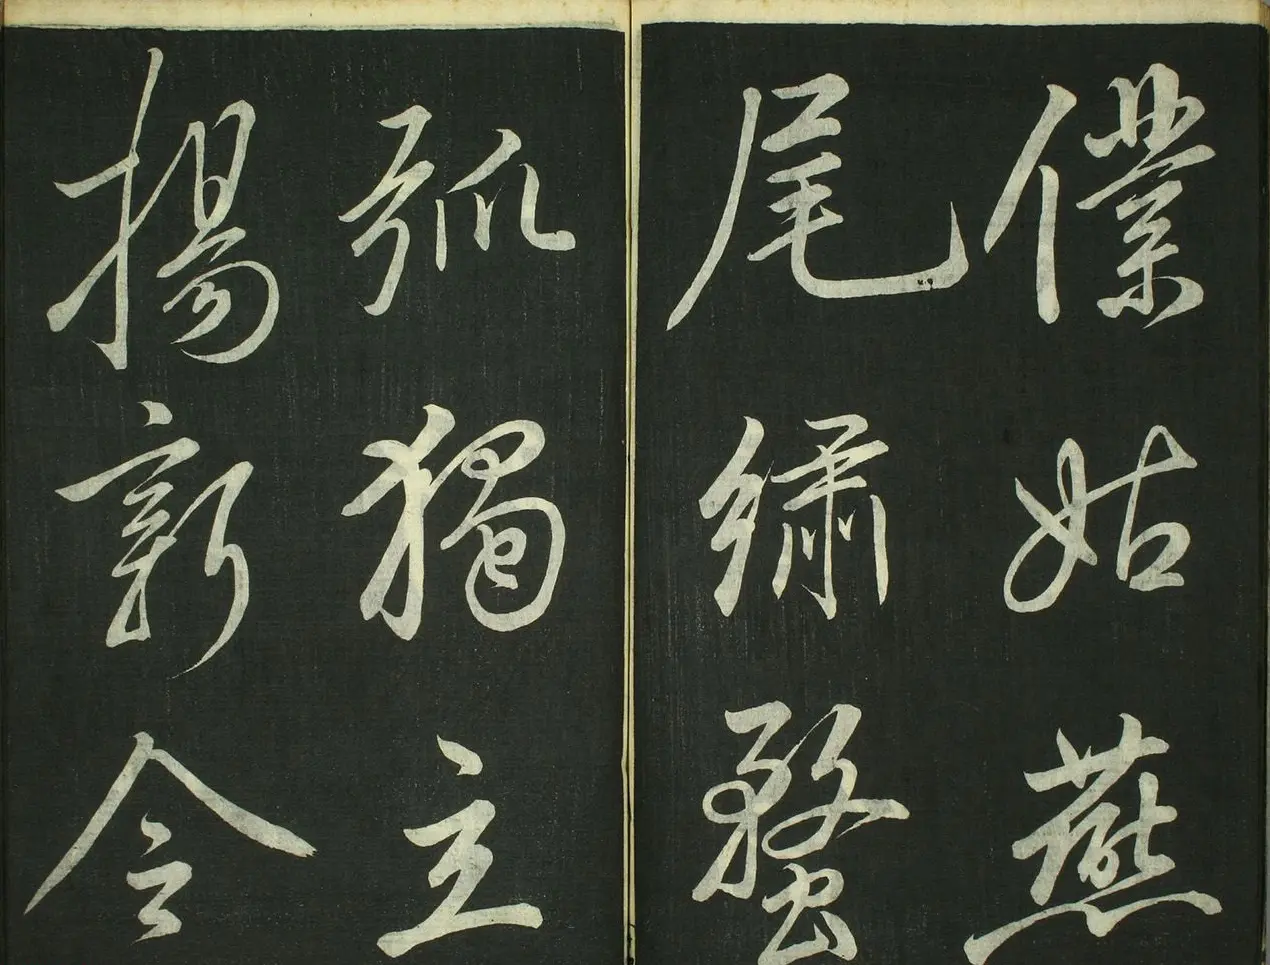 僕姑燕
尾繡蝥
弧獨立
揚新令